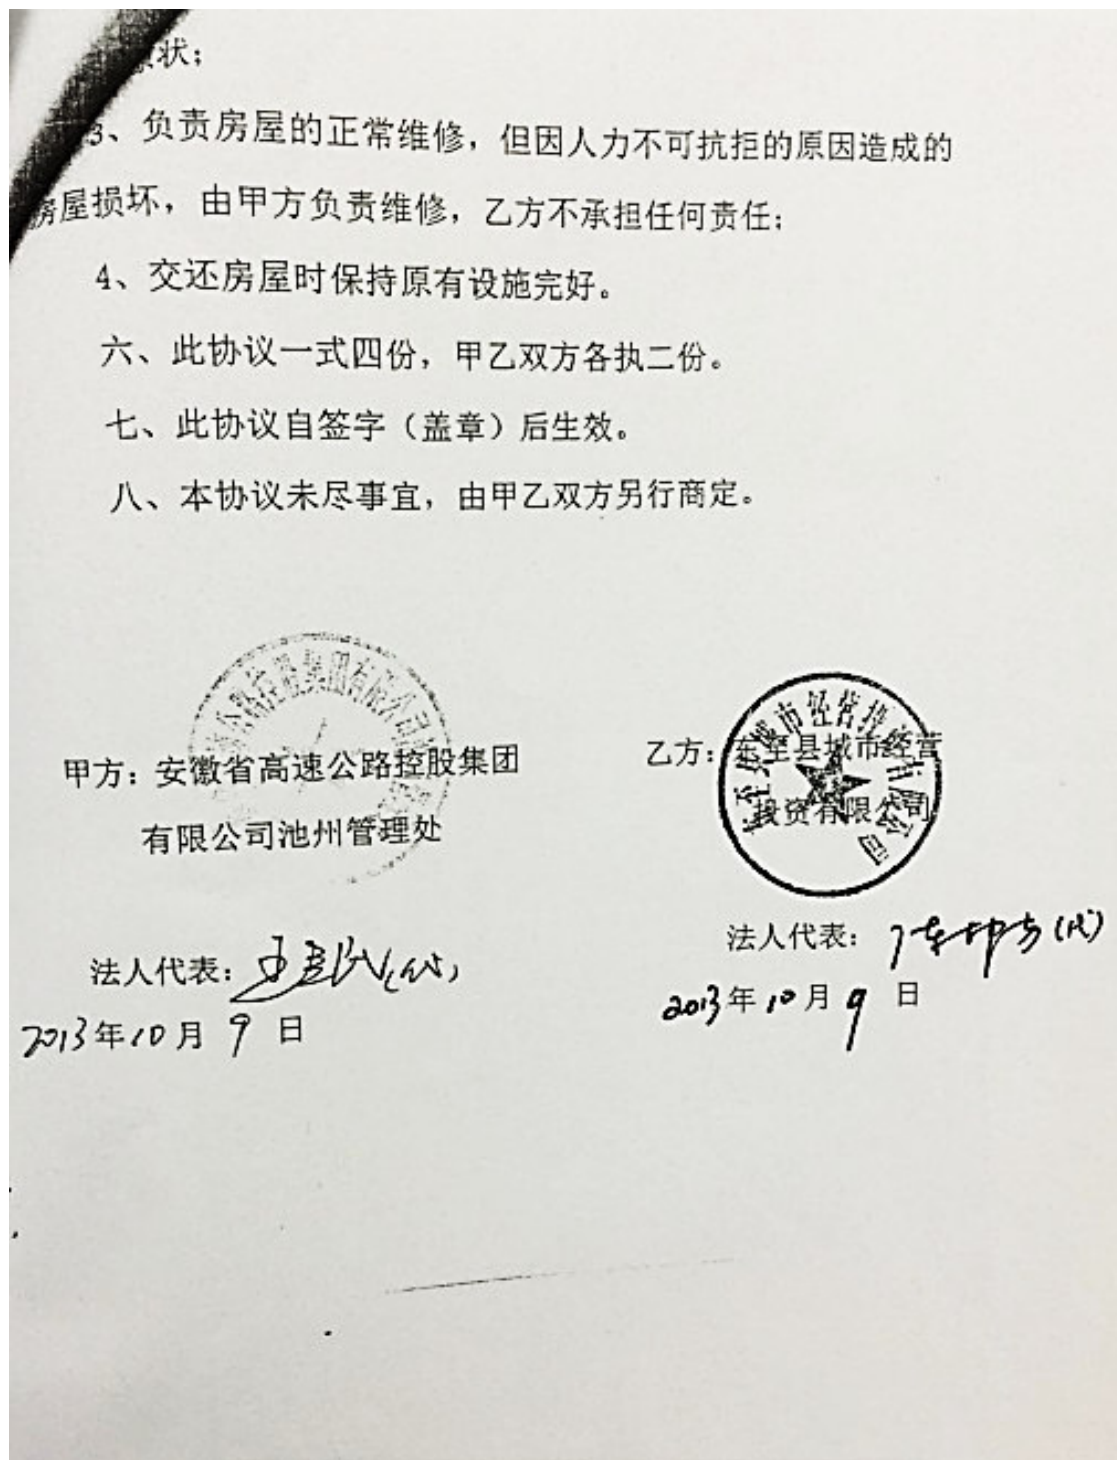 状；
3、负责房屋的正常维修，但因人力不可抗拒的原因造成的
房屋损坏，由甲方负责维修，乙方不承担任何责任；
4、交还房屋时保持原有设施完好。
六、此协议一式四份，甲乙双方各执二份。
七、此协议自签字（盖章）后生效。
八、本协议未尽事宜，由甲乙双方另行商定。
甲方：安徽省高速公路控股集团
有限公司池州管理处
法人代表：
2013年10月9日
乙方：东至县城市经营
投资有限公司
法人代表：
2013年10月9日